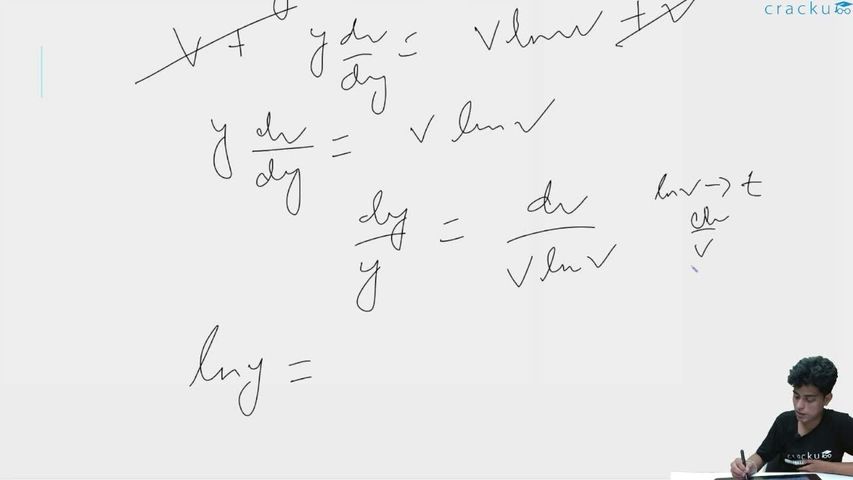 cracku
v + y dv/dy = v ln v + v
y dv/dy = v ln v
dy/y = dv/(v ln v)
ln v → t
dv/v
ln y =
cracku